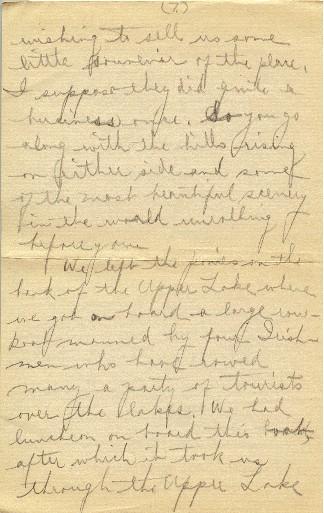 (7.)
wishing to sell us some
little souvenir of the place.
I suppose they did quite a
business once. So you go
along with the hills rising
on either side and some
of the most beautiful scenery
in the world unrolling
before you.
We left the ponies on the
bank of the Upper Lake where
we got on board a large row-
boat manned by four Irish-
men who have rowed
many a party of tourists
over the lakes. We had
luncheon on board this boat,
after which it took us
through the Upper Lake